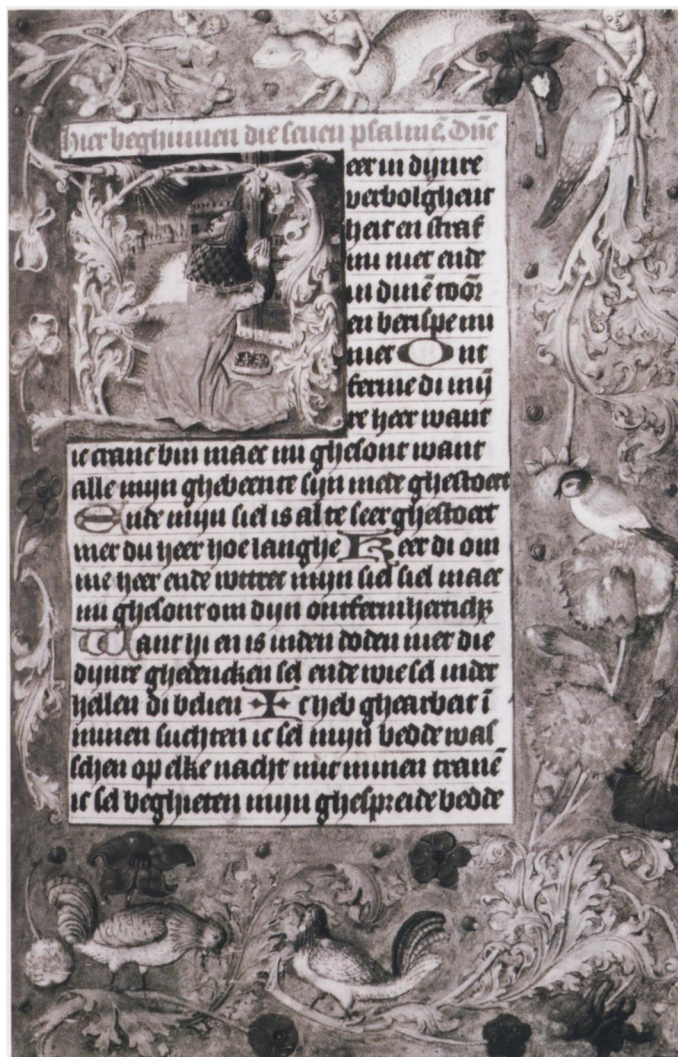 hier beghinnen die seuen psalmē. Dn̄e
eer in dijnre
verbolghent
heit en straf
mi niet ende
in dinē toōr
en berispe mi
niet Ont
ferme di mij
re heer want
ic cranc bin maec mi ghesont want
alle mijn ghebeente sijn mede ghestoert
Ende mijn siel is al te seer ghestoert
mer du heer hoe langhe Keer di om
me heer ende wttret mijn siel siel maec
mi ghesont om dijn ontfermherticħʒ
Want hi en is inden doden niet die
dijnre ghedencken sel ende wie sel inder
hellen di belien Ic heb ghearbeit ī
minen suchten ic sel mijn bedde was
schen op elke nacht mit minen tranē
ic sel beghieten mijn ghespreide bedde